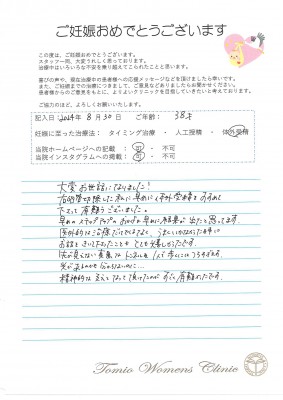 ご妊娠おめでとうございます
この度は、ご妊娠おめでとうございます。
スタッフ一同、大変うれしく思っております。
治療中はいろいろな不安を乗り越えてこられたことと思います。
喜びの声や、現在治療中の患者様への応援メッセージなどを頂けましたら幸いです。
また、ご妊娠までの治療につきまして、ご意見などありましたらお聞かせください。
患者様からのご意見をもとに、よりよいクリニックを目指していきたいと考えております。
ご協力のほど、よろしくお願いいたします。
記入日 2024年 8月 30日 ご年齢: 38才
妊娠に至った治療法: タイミング治療 ・ 人工授精 ・ 体外受精
当院ホームページへの記載 : 可 ・ 不可
当院インスタグラムへの掲載 : 可 ・ 不可
大変お世話になりました!
右卵管切除した私に早めに体外受精をすすめて
下さって有難うございました。
早めのステップアップのおかげで早めに結果が出たと思ってます。
医学的な治療だけでなく、うまくいかなかった時に
お話をきいて下さったことも とても嬉しかったです。
先が見えない長い トンネルを 1人で歩くにはつらすぎて、
光が
精神的な支えとなって頂けたのが すごく有難かったです。
Tomio Womens Clinic